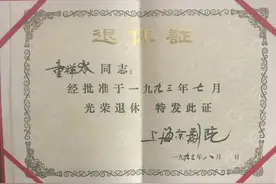 退休证
童祥苓 同志：
经批准于一九九三年七月
光荣退休 特发此证
上海京剧院
一九九三年八月 日